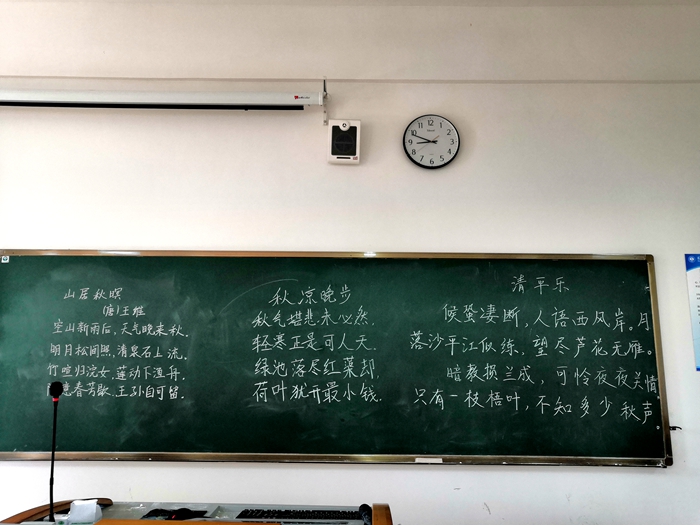 山居秋暝
唐)王维
空山新雨后,天气晚来秋.
明月松间照,清泉石上流.
竹喧归浣女,莲动下渔舟.
意春芳歇,王孙自可留.
秋凉晚步
秋气堪悲未必然.
轻寒正是可人天.
绿池落尽红蕖却,
荷叶犹开最小钱.
清平乐
候蛩凄断,人语西风岸。月
落沙平江似练,望尽芦花无雁。
暗教损兰成,可怜夜夜关情.
只有一枝梧叶,不知多少秋声。
12
1
2
3
4
5
6
7
8
9
10
11